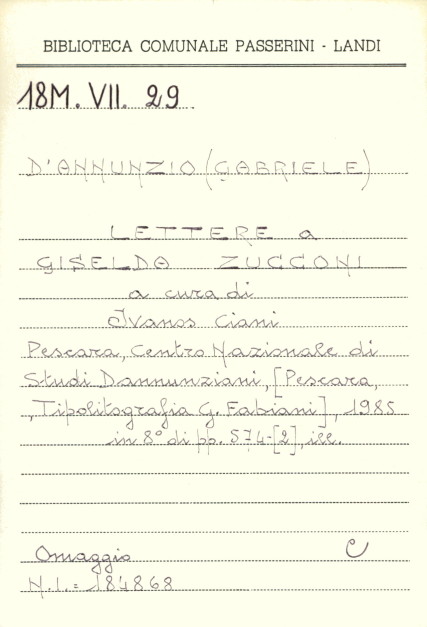 BIBLIOTECA COMUNALE PASSERINI - LANDI
18M. VII. 29.
D'ANNUNZIO (GABRIELE)
LETTERE a
GISELDA ZUCCONI
a cura di
Ivanos Ciani
Pescara, Centro Nazionale di
Studi Dannunziani, [Pescara,
, Tipolitografia G. Fabiani], 1985
in 8° di pp. 574-[2], ill.
Omaggio C
N.I.= 184868